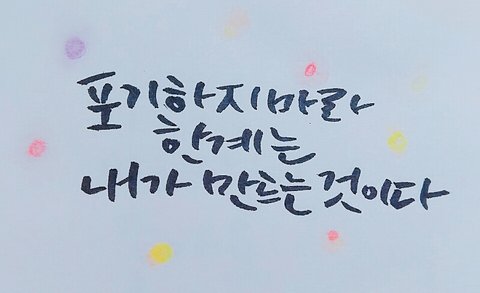 포기하지마라
한계는
내가 만드는것이다